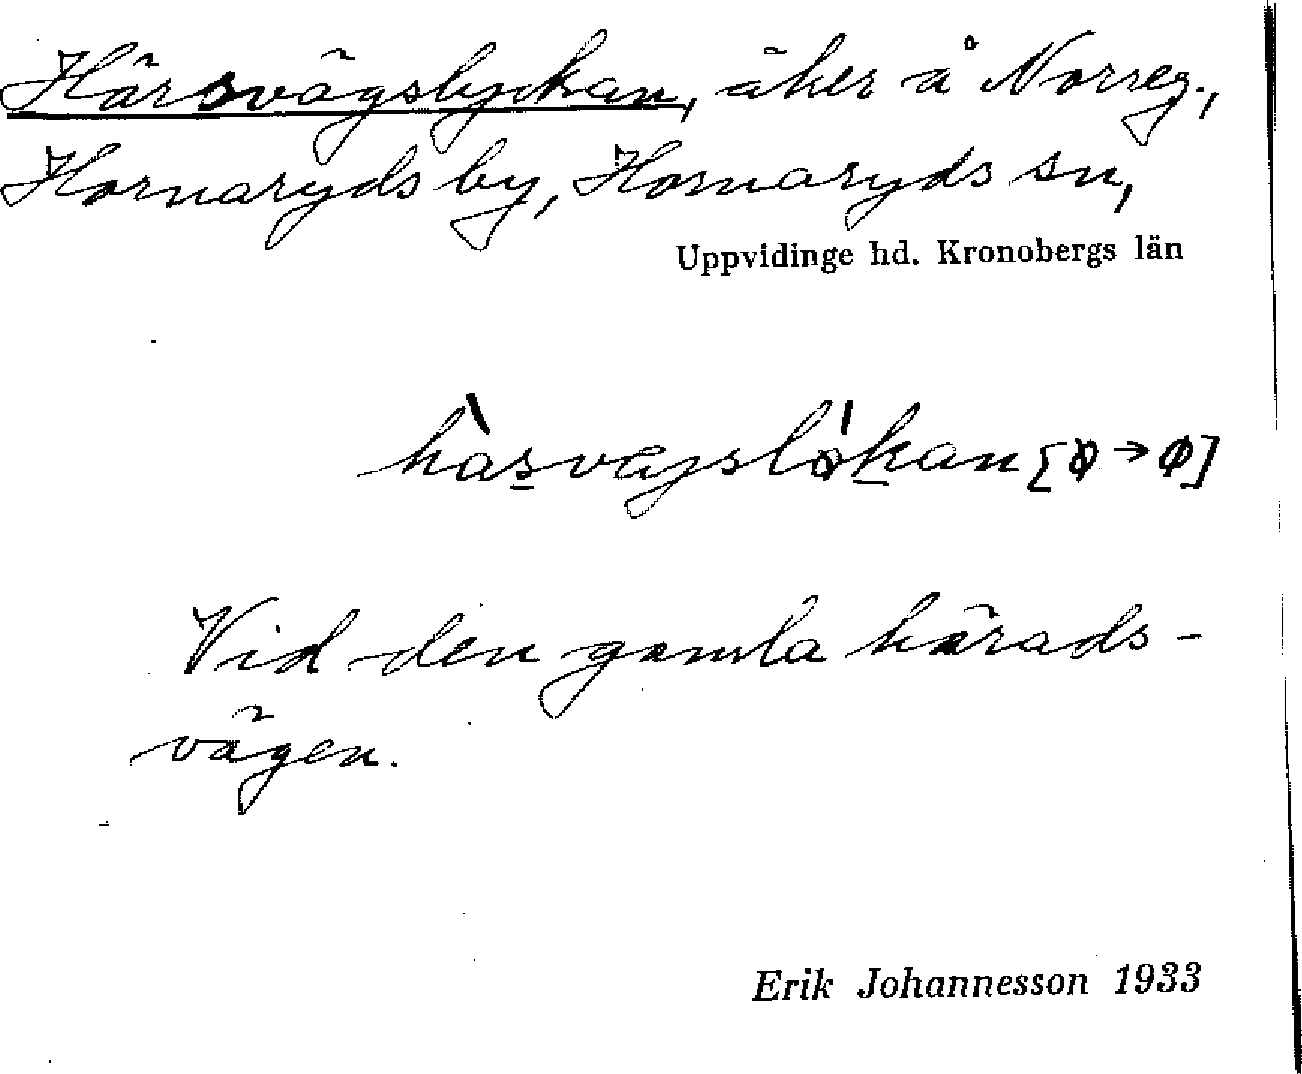 Härsvägslyckan, åker å Norreg.,
Hornaryds by, Hornaryds sn,
Uppvidinge hd. Kronobergs län
hàsvægslǿkan [ꝋ → ø]
Vid den gamla härads-
vägen.
Erik Johannesson 1933